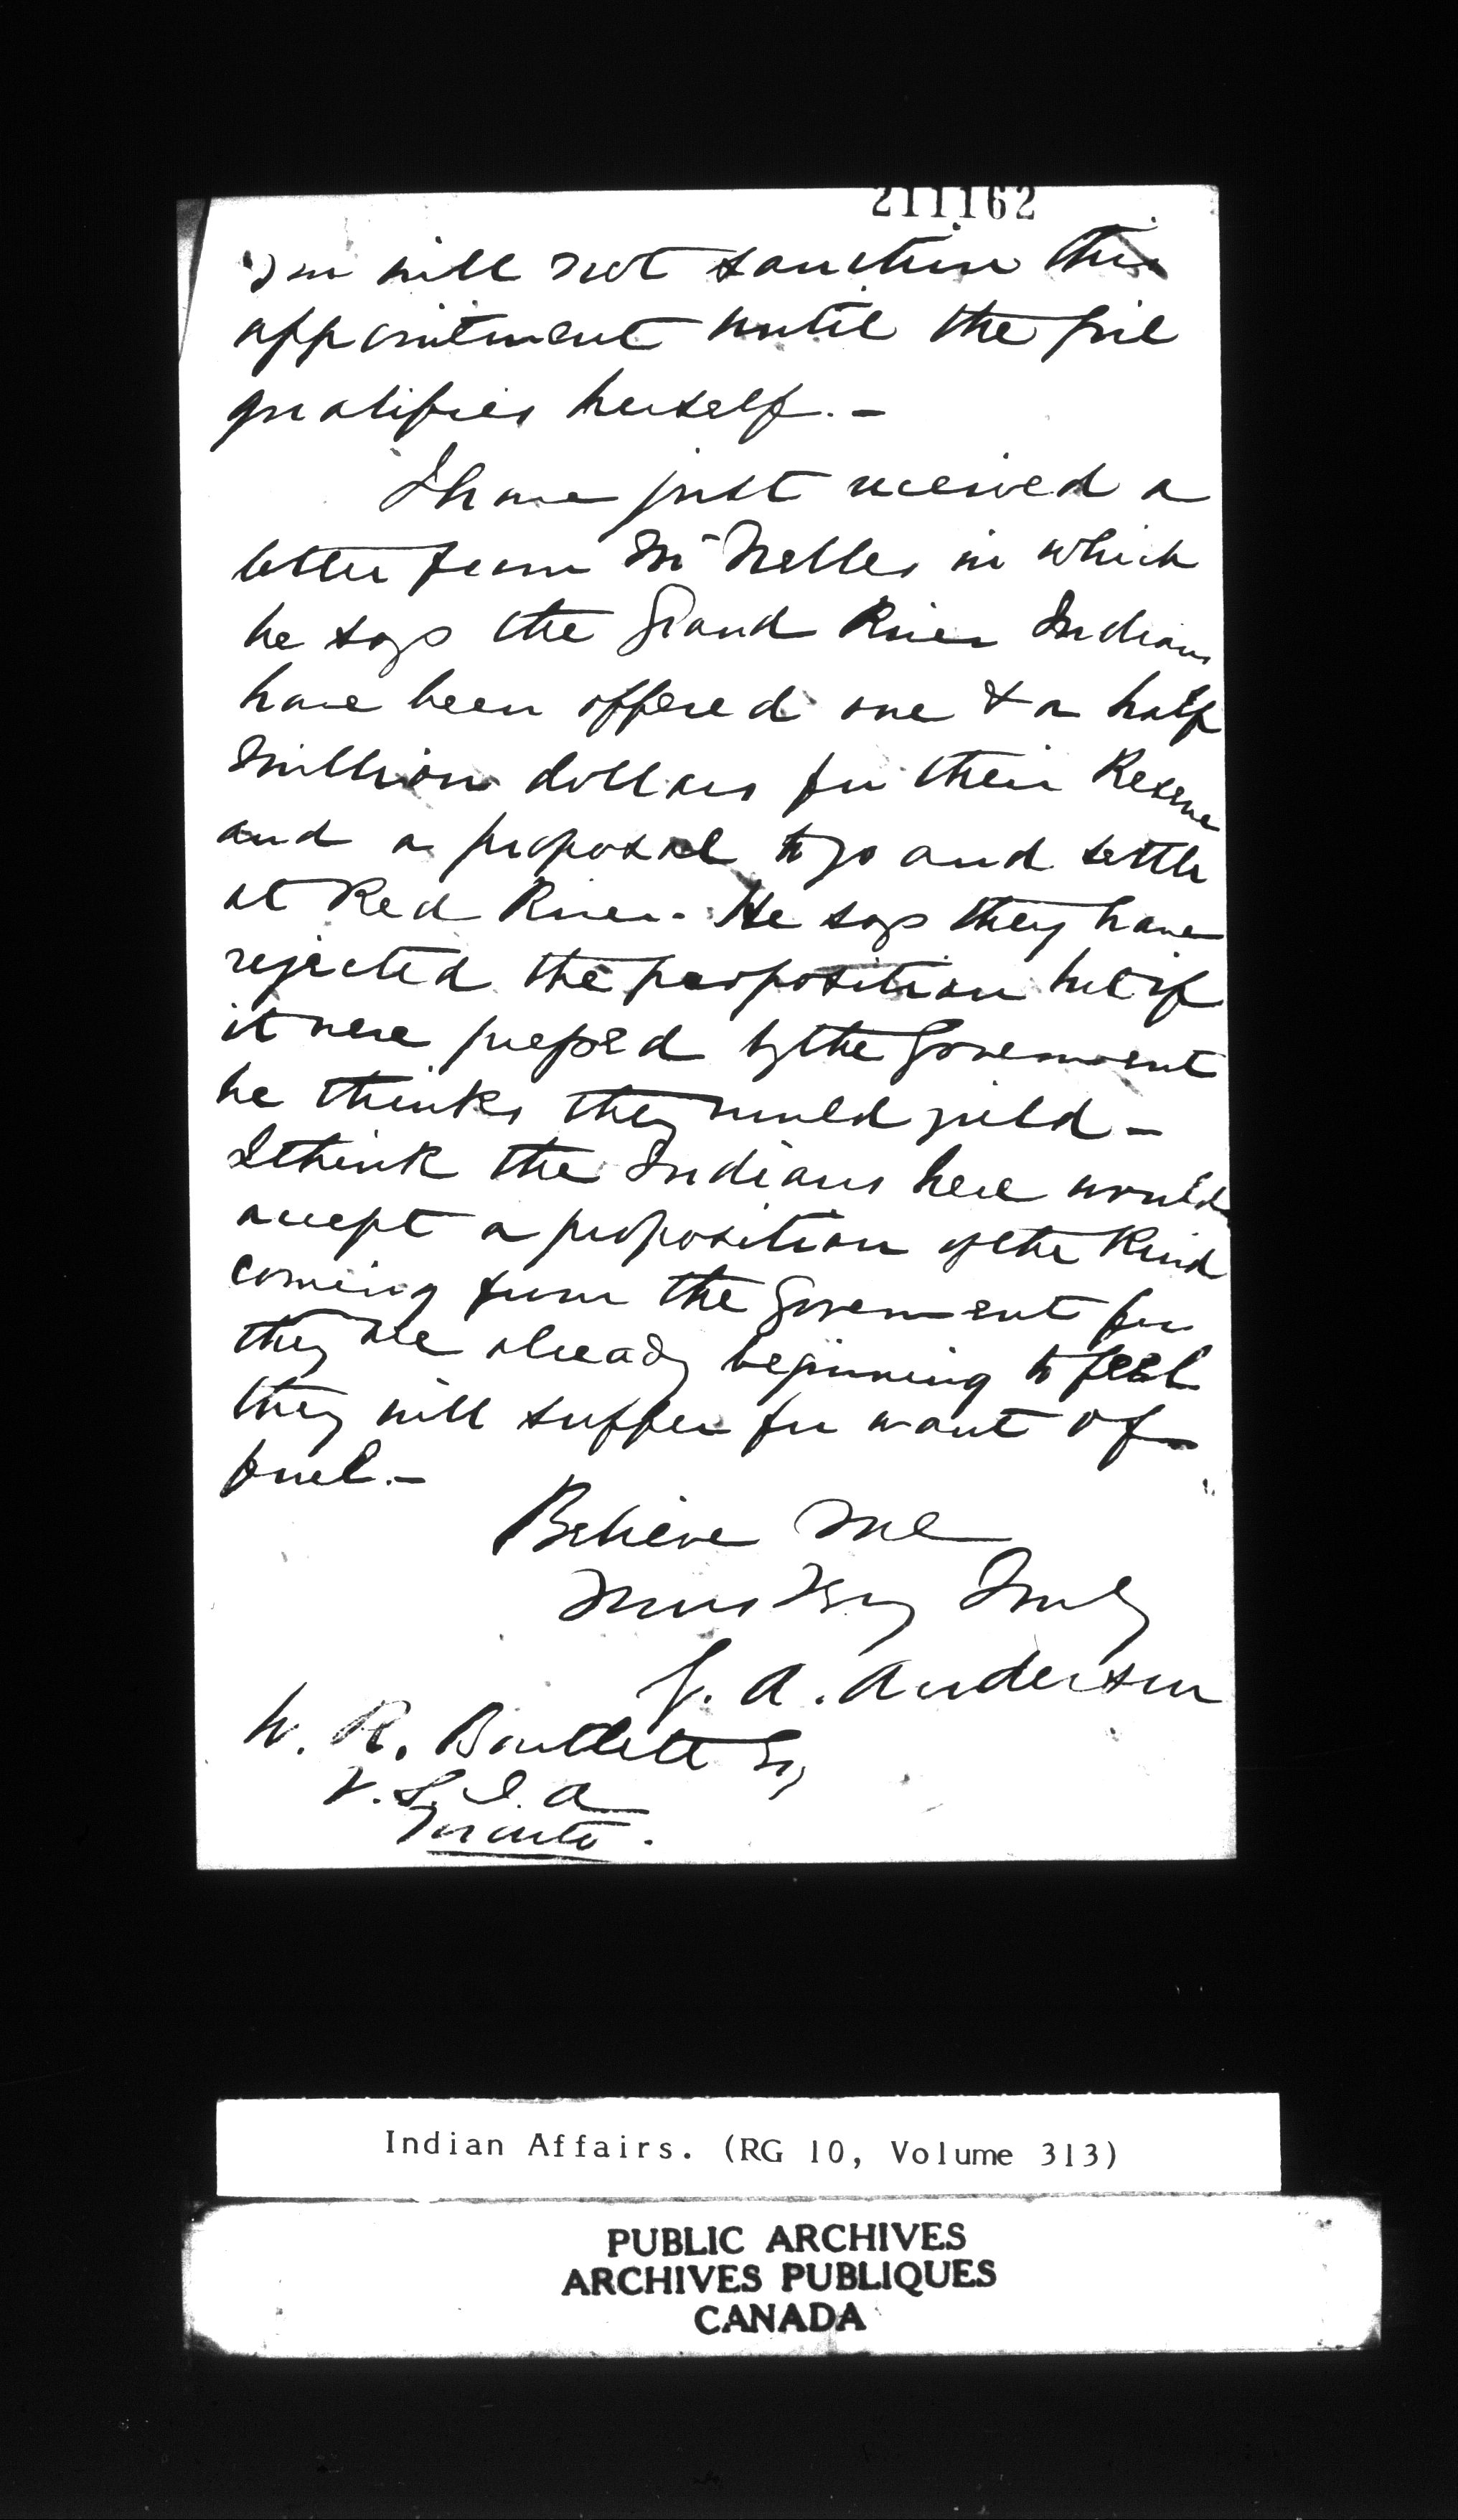 211162
you will not sanction this
appointment until the girl
qualifies herself. -
I have just received a
letter from Mr Nelles in which
he says the Grand River Indians
have been offered one & a half
million dollars for their Reserve
and a proposal to go and settle
at Red River. He says they have
rejected the proposition but if
it were by the Government
he thinks they would yield -
I think the Indians here would
accept a proposition of the Kind
coming from the Government for
they are already beginning to feel
they will suffer for want of
fuel. -
Believe me
Yours Very Truly
A. Anderson
W. R. Bartlett Esq
V.S.I.A
Toronto.
Indian Affairs. (RG 10, Volume 313)
PUBLIC ARCHIVES
ARCHIVES PUBLIQUES
CANADA